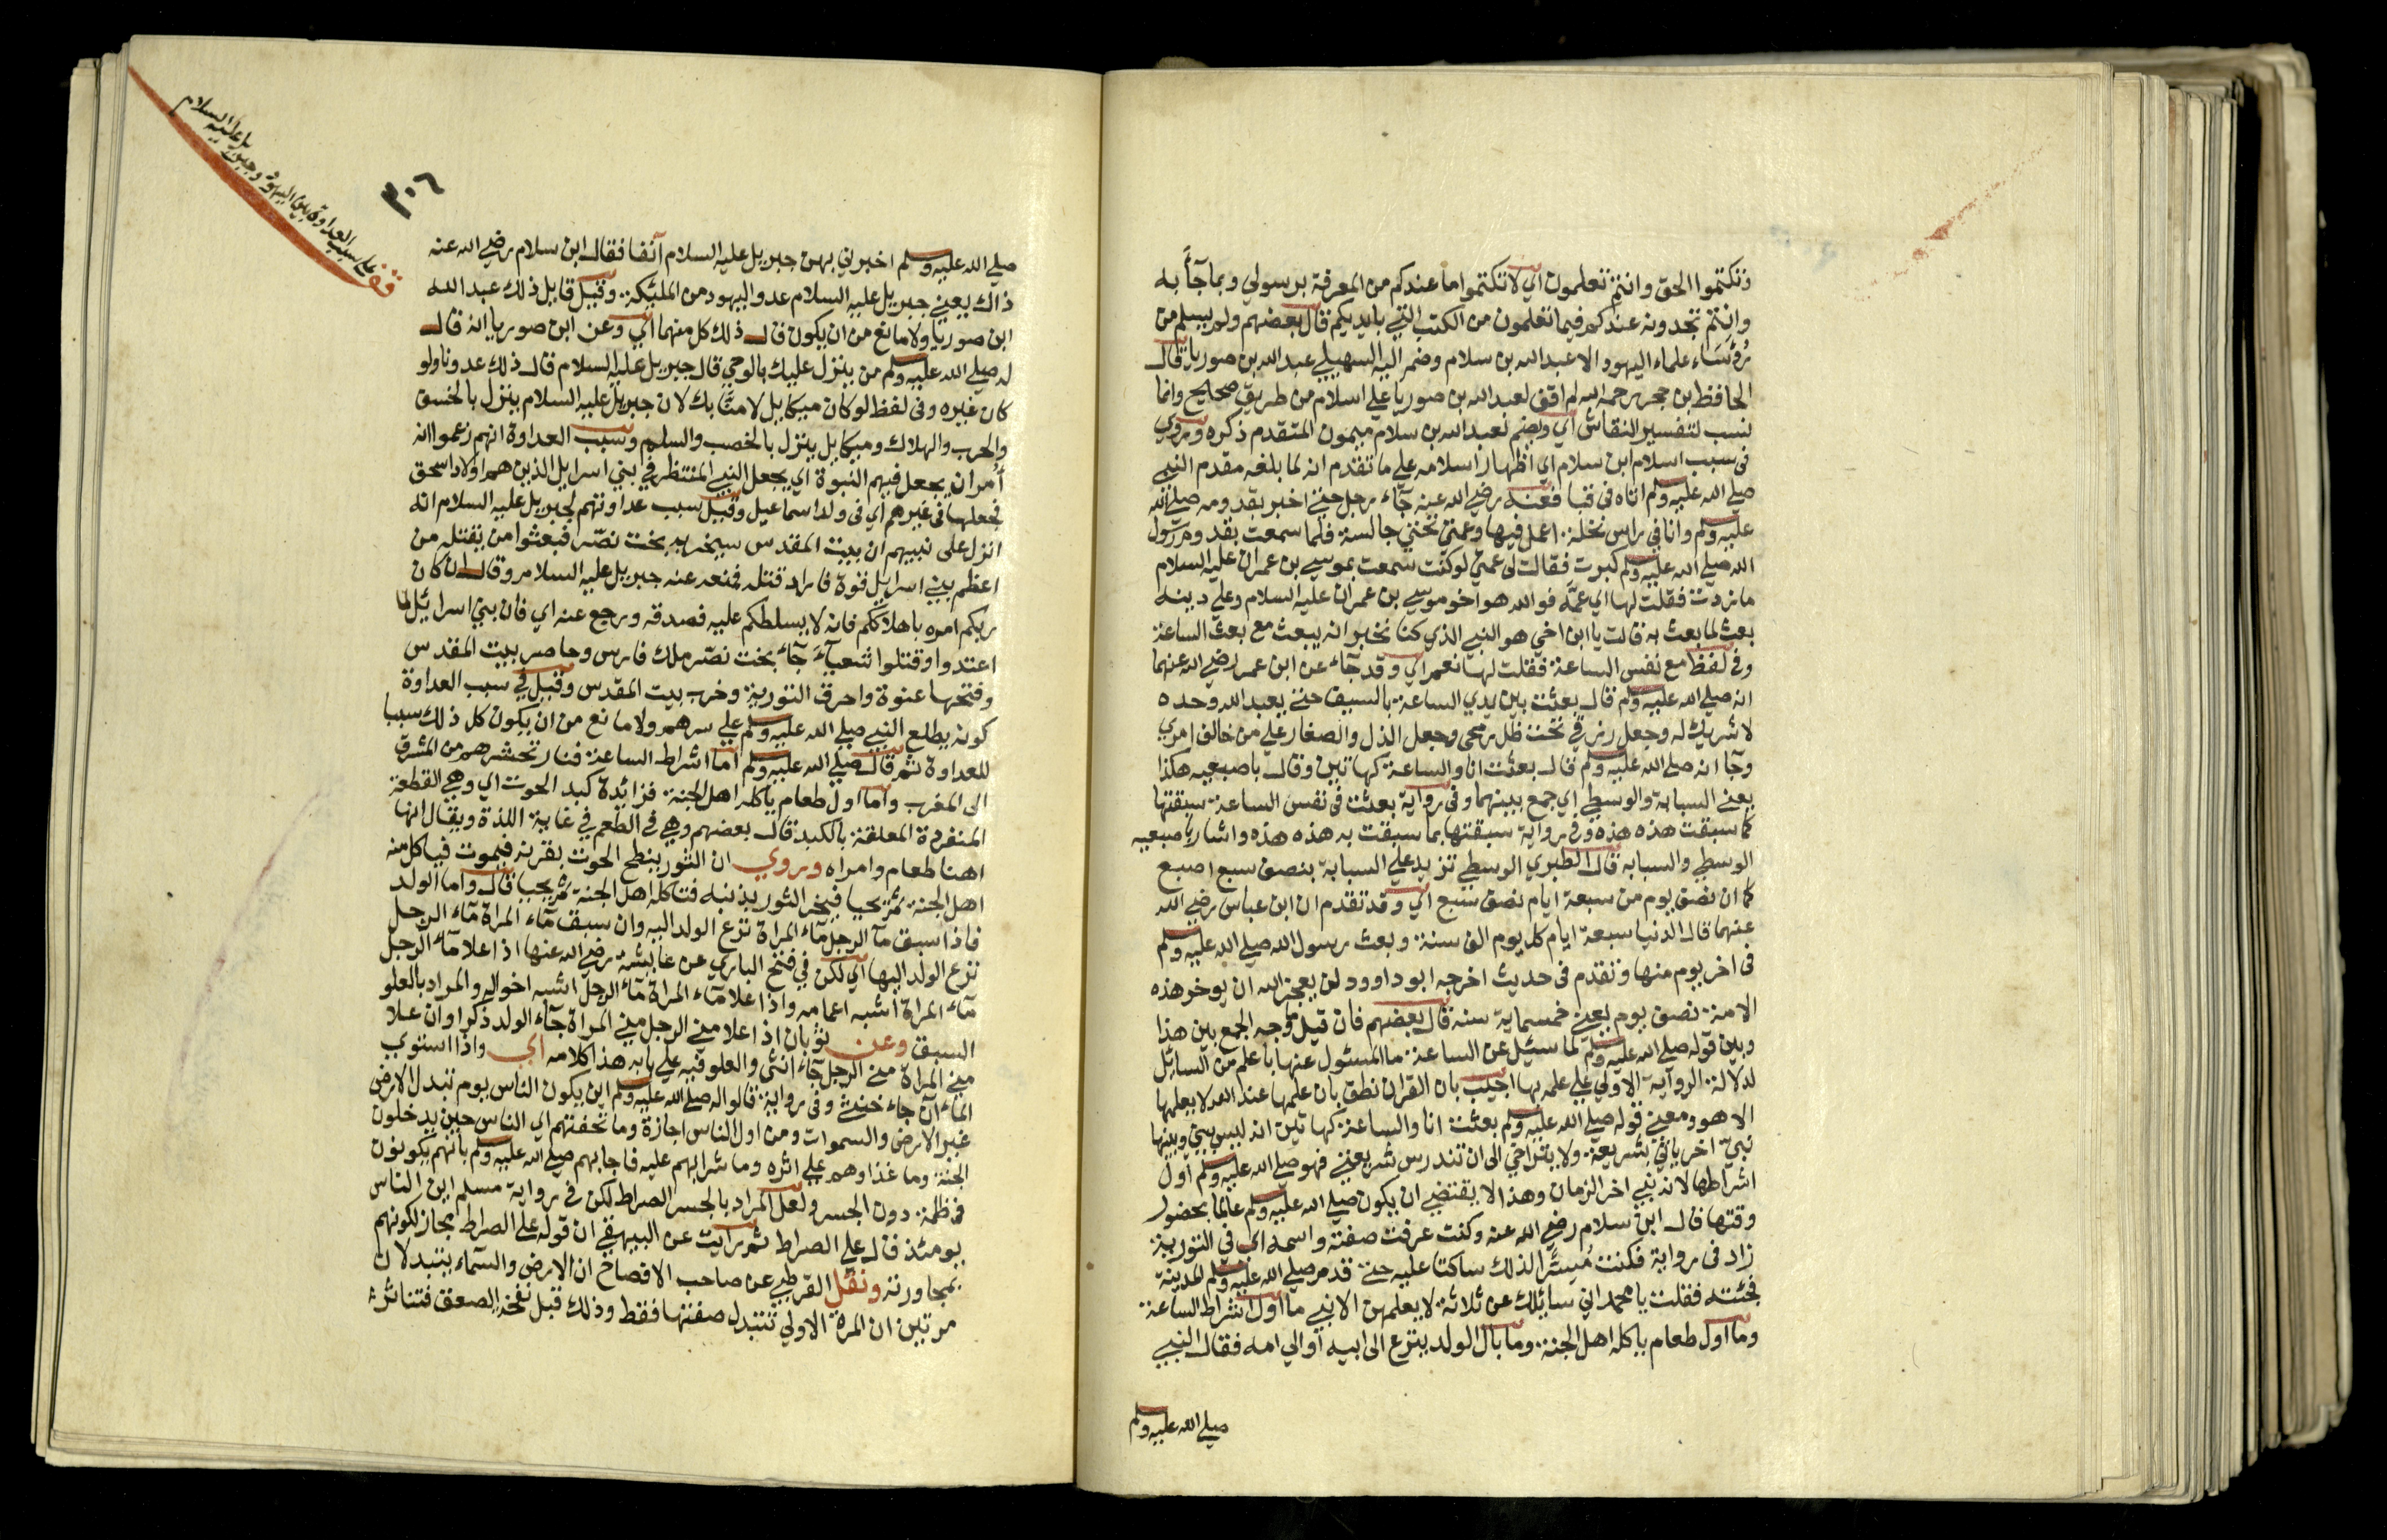 وتكتموا الحق وانتم تعلمون اي لا تكتموا ما عندكم من المعرفة برسولي وبما جآء به
وانتم تجدونه عندكم فيما تعلمون من الكتب التي بايديكم قال بعضهم ولم يسلم من
رؤسَاء علماء اليهود الا عبد الله بن سلام وضم اليه السهيلي عبد الله بن صوريا قال
الحافظ بن حجر رحمه الله لم اقف لعبد الله بن صوريا علي اسلام من طريق صحيح وانما
نسب لتفسير النقاش اي ويضم لعبد الله بن سلام ميمون المتقدم ذكره وروي
في سبب اسلام ابن سلام اي اظهار اسلامه علي ما تقدم انه لما بلغه مقدم النبي
صلي الله عليه وسلم اتاه في قبا فعنه رضي الله عنه جآء رجل حتي اخبر بقدومه صلي الله
عليه وسلم وانا في راس نخلة اعمل فيها وعمتي تحتي جالسة فلما سمعت بقدوم رسول
الله صلي الله عليه وسلم كبرت فقالت لي عمتي لو كنت سمعت بموسي بن عمران عليه السلام
ما زدت فقلت لها اي عمّة فوالله هو اخو موسي بن عمران عليه السلام وعلي دينه
بعث لما بعث به قالت يا ابن اخي هو النبي الذي كنا نخبر انه يبعث مع بعث الساعة
وفي لفظ مع نفس الساعة فقلت لها نعم اي وقد جآء عن ابن عمر رضي الله عنهما
انه صلي الله عليه وسلم قال بعثت بين يدي الساعة بالسيف حتي يعبد الله وحده
لا شريك له وجعل رزقي تحت ظل رمحي وجعل الذل والصغار علي من خالف امري
وجآ انه صلي الله عليه وسلم قال بعثت انا والساعة كهاتين وقال باصبعيه هكذا
يعني السبابة والوسطي اي جمع بينهما وفي رواية بعثت في نفس الساعة سبقتها
كما سبقت هذه هذه وفي رواية سبقتها بما سبقت به هذه هذه واشار باصبعيه
الوسطي والسبابه قال الطبري الوسطي تزيد علي السبابة بنصف سبع اصبع
كما ان نصف يوم من سبعة ايام نصف سبع اي وقد تقدم ان ابن عباس رضي الله
عنهما قال الدنيا سبعة ايام كل يوم الف سنة وبعث رسول الله صلي الله عليه وسلم
في اخر يوم منها وتقدم في حديث اخرجه ابو داوود لن يعجز الله ان يوخر هذه
الامة نصف يوم يعني خمسماية سنه قال بعضهم فان قيل ما وجه الجمع بين هذا
وبين قوله صلي الله عليه وسلم لما سيئل عن الساعة ما المسئول عنها باعلم من السائل
لدلالة الرواية الاولي علي علمه بها اجيب بان القران نطق بان علمها عند الله لا يعلمها
الا هو ومعني قوله صلي الله عليه وسلم بعثت انا والساعة كهاتين انه ليس بيني وبينها
نبي اخر ياتي بشريعة ولا يتراخي الي ان تندرس شريعتي فهو صلي الله عليه وسلم اول
اشراطها لانه نبي اخر الزمان وهذا لا يقتضي ان يكون صلي الله عليه وسلم عالما بحضور
وقتها قال ابن سلام رضي الله عنه وكنت عرفت صفته واسمه اي في التورية
زاد في رواية فكنت مُسِرًّا لذلك ساكتا عليه حتي قدم صلي الله عليه وسلم المدينة
فجئته فقلت يا محمد اني سايلك عن ثلاثة لا يعلمهن الا نبي ما اول اشراط الساعة
وما اول طعام ياكله اهل الجنة وما بال الولد ينزع الي ابيه او الي امه فقال النبي
صلي الله عليه وسلم
قف علي سبب العداوة بين اليهود وجبريل عليه السلام
٣٠٦
صلي الله عليه وسلم اخبرني بهن جبريل عليه السلام آنفا فقال ابن سلام رضي الله عنه
ذاك يعني جبريل عليه السلام عدو اليهود من المليكة وقيل قايل ذلك عبد الله
ابن صوريا ولا مانع من ان يكون قال ذلك كل منهما اي وعن ابن صوريا انه قال
له صلي الله عليه وسلم من ينزل عليك بالوحي قال جبريل عليه السلام قال ذلك عدونا ولو
كان غيره وفي لفظ لو كان ميكايل لامنّا بك لان جبريل عليه السلام ينزل بالخسف
والحرب والهلاك وميكايل ينزل بالخصب والسلم وسبب العداوة انهم زعموا انه
أمر ان يجعل فيهم النبوة اي يجعل النبي المنتظر في بني اسرايل الذين هم اولاد اسحق
فجعلها في غيرهم اي في ولد اسماعيل وقيل سبب عداوتهم لجبريل عليه السلام انه
انزل على نبيهم ان بيت المقدس سيخربه بخت نصّر فبعثوا من يقتله من
اعظم بني اسرايل قوة فاراد قتله فمنعه عنه جبريل عليه السلام وقال ان كان
ربكم امره باهلاككم فانه لا يسلطكم عليه فصدقه ورجع عنه اي فان بني اسرائيل لما
اعتدوا وقتلوا شعيآء جآء بخت نصّر ملك فارس وحاصر بيت المقدس
وفتحها عنوة واحرق التورية وخرب بيت المقدس وقيل في سبب العداوة
كونه يطلع النبي صلي الله عليه وسلم علي سرهم ولا مانع من ان يكون كل ذلك سببا
للعداوة ثم قال صلي الله عليه وسلم اما اشراط الساعة فنار تحشرهم من المشرق
الى المغرب واما اول طعام ياكله اهل الجنة فزائدة كبد الحوت اي وهي القطعة
المنفردة المعلقة بالكبد قال بعضهم وهي في الطعم في غاية اللذة ويقال انها
اهنا طعام وامراه وروي ان الثور ينطح الحوت بقرنه فيموت فياكل منه
اهل الجنة ثم يحيا فينحر الثور بذنبه فتاكله اهل الجنة ثم يحيا قال واما الولد
فاذا سبق مآ الرجل مآء المراة نزع الولد اليه وان سبق مآء المراة مآء الرجل
نزع الولد اليها اي لكن في فتح الباري عن عايشة رضي الله عنها اذ اعلا مآء الرجل
مآء المراة اشبه اعمامه واذا علا مآء المراة مآء الرجل اشبه اخواله والمراد بالعلو
السبق وعن ثوبان اذ اعلا مني الرجل مني المراة جآء الولد ذكرا وان علا
مني المراة مني الرجل جآء انثى والعلو فيه علي بابه هذا كلامه اي واذا استوي
الماءان جاء خنثي وفي رواية قالوا له صلي الله عليه وسلم اين يكون الناس يوم تبدل الارض
غير الارض والسموات ومن اول الناس اجازة وما تحفتهم اي الناس حين يدخلون
الجنة وما غذاوهم علي اثره وما شرابهم عليه فاجابهم صلي الله عليه وسلم بانهم يكونون
في ظلمة دون الجسر ولعل المراد بالجسر الصراط لكن في رواية مسلم اين الناس
يومئذ قال علي الصراط ثم رايت عن البيهقي ان قوله علي الصراط مجاز لكونهم
بمجاورته ونقل القرطبي عن صاحب الافصاح ان الارض والسمآء يتبدلان
مرتين ان المرة الاولي تتبدل صفتها فقط وذلك قبل نفخة الصعق فتناثر